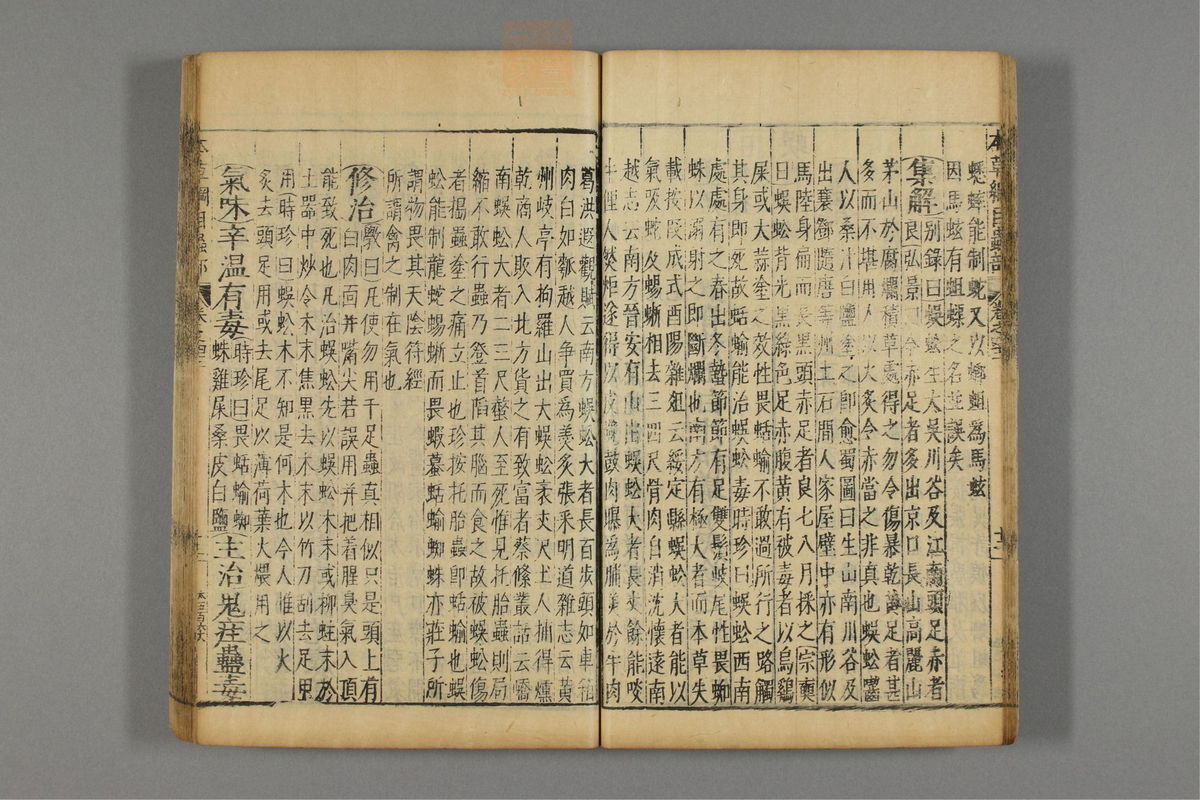 蟋蟀能制蛇又以蝍蛆為馬蚿
因馬蚿有蛆蟝之名並誤矣
集解別錄曰蜈蚣生大吳川谷及江南頭足赤者
良弘景曰今赤足者多出京口長山高麗山
茅山於腐爛積草處得之勿令傷暴乾黃足者甚
多而不堪用人以火炙令赤當之非真也蜈蚣齧
人以桑汁白鹽塗之即愈蜀圖曰生山南川谷及
出襄鄧隨唐等州土石間人家屋壁中亦有形似
馬陸身扁而長黑頭赤足者良七八月採之宗奭
曰蜈蚣背光黑綠色足赤腹黃有被毒者以烏鷄
屎或大蒜塗之效性畏蛞蝓不敢過所行之路觸
其身即死故蛞蝓能治蜈蚣毒時珍曰蜈蚣西南
處處有之春出冬蟄節節有足雙鬚岐尾性畏蜘
蛛以溺射之即斷爛也南方有極大者而本草失
載按段成式酉陽雜俎云綏定縣蜈蚣大者能以
氣吸蛇及蜴蜥相去三四尺骨肉自消沈懷遠南
越志云南方晉安有山出蜈蚣大者長丈餘能啖
牛俚人然炬逐得以皮鞔鼓肉曝為脯美於牛肉
葛洪遐觀賦云南方蜈蚣大者長百步頭如車箱
肉白如瓠越人爭買為羹炙張耒明道雜志云黃
州岐亭有拘羅山出大蜈蚣袤丈尺土人捕得熏
乾商人販入北方貨之有致富者蔡絛叢話云嶠
南蜈蚣大者二三尺螫人至死惟見托胎蟲則局
縮不敢行蟲乃登首陷其腦而食之故被蜈蚣傷
者搗蟲塗之痛立止也珍按托胎蟲即蛞蝓也蜈
蚣能制龍蛇蜴蜥而畏蝦蟇蛞蝓蜘蛛亦莊子所
謂物畏其天陰符經
所謂禽之制在氣也
修治斅曰凡使勿用千足蟲真相似只是頭上有
白肉面并嘴尖若誤用并把着腥臭氣入頂
能致死也凡治蜈蚣先以蜈蚣木末或柳蛀末於
土器中炒令木末焦黑去木末以竹刀刮去足甲
用時珍曰蜈蚣木不知是何木也今人惟以火
炙去頭足用或去尾足以薄荷葉火煨用之
氣味辛溫有毒時珍曰畏蛞蝓蜘
蛛雞屎桑皮白鹽主治鬼疰蠱毒